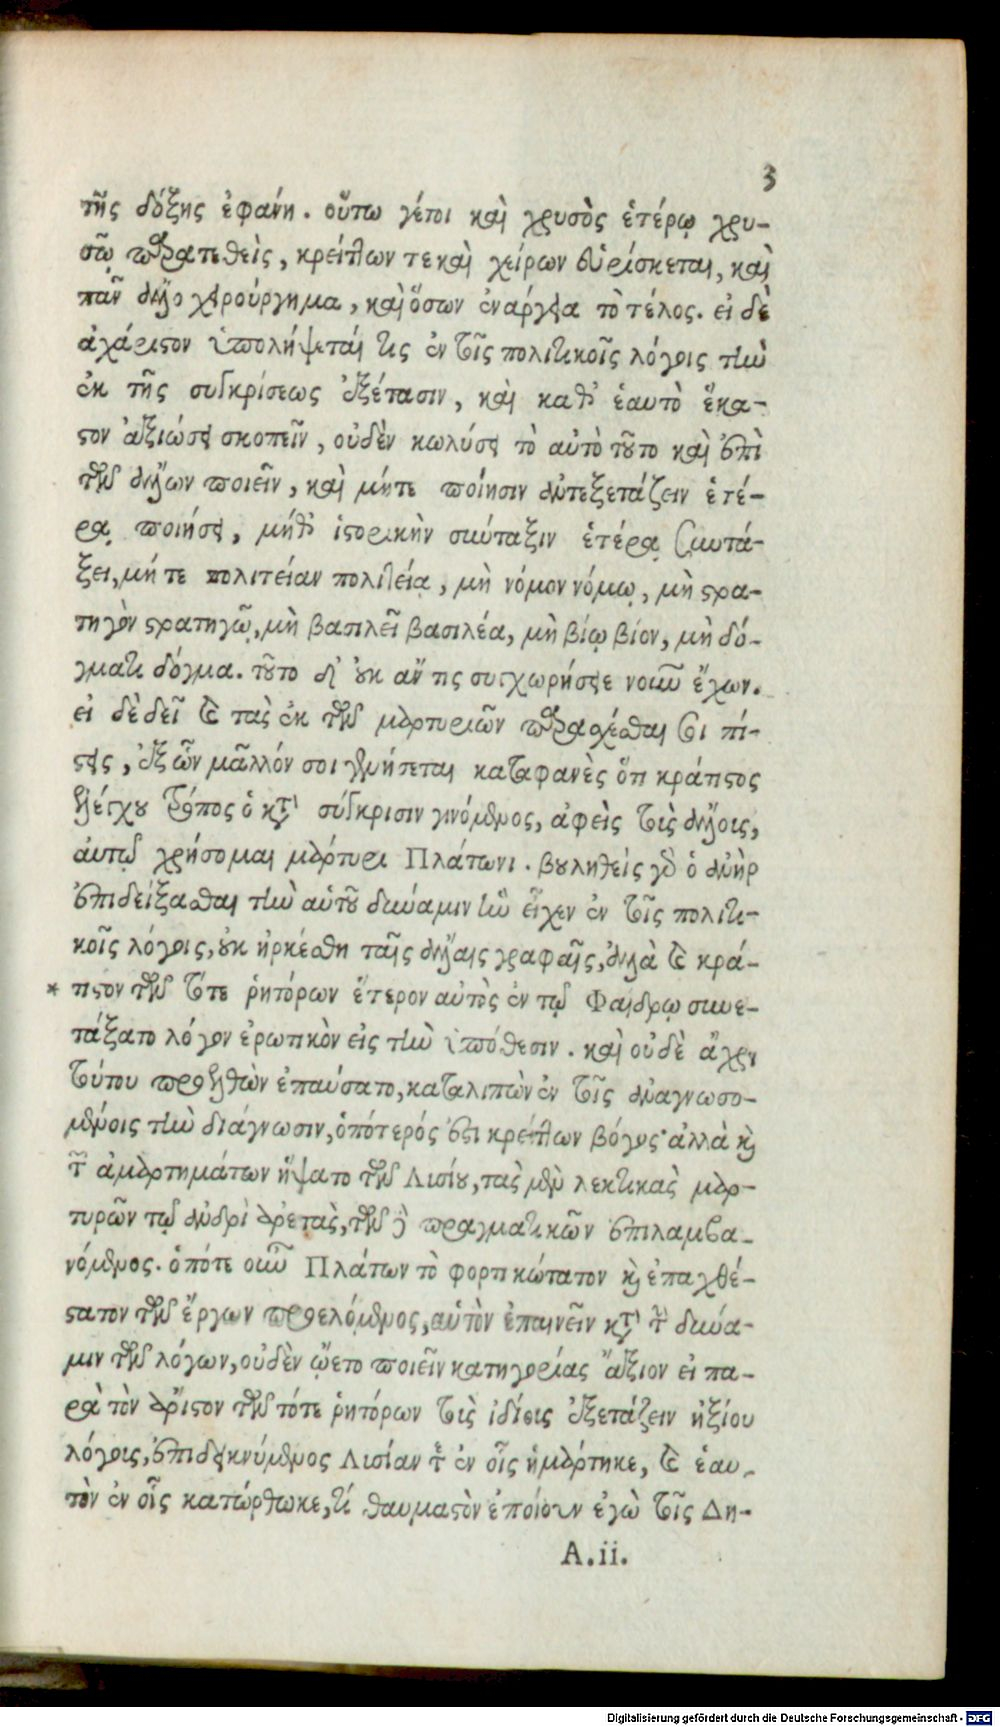 3
τῆς δόξης ἐφάνη. οὕτω γέτοι καὶ χρυσὸς ἑτέρῳ χρυ-
σῷ παρατεθεὶς, κρείττων τε καὶ χείρων εὑρίσκεται, καὶ
πᾶν ἄλλο χειρούργημα, καὶ ὅσων ἐνάργεια τὸ τέλος. εἰ δὲ
ἀχάριστον ὑπολήψεταί τις ἐν τοῖς πολιτικοῖς λόγοις τὴν
ἐκ τῆς συγκρίσεως ἐξέτασιν, καὶ καθ' ἑαυτὸ ἕκα-
στον ἀξιώσει σκοπεῖν, οὐδὲν κωλύσει τὸ αὐτὸ τοῦτο καὶ ἐπὶ
τῶν ἄλλων ποιεῖν, καὶ μήτε ποίησιν ἀντεξετάζειν ἑτέ-
ρᾳ ποιήσει, μήθ' ἱστορικὴν σύνταξιν ἑτέρᾳ συντά-
ξει, μήτε πολιτείαν πολιτείᾳ, μὴ νόμον νόμῳ, μὴ στρα-
τηγὸν στρατηγῷ, μὴ βασιλεῖ βασιλέα, μὴ βίῳ βίον, μὴ δό-
γματι δόγμα. τοῦτο δ' οὐκ ἄν τις συγχωρήσειε νοῦν ἔχων.
εἰ δὲ δεῖ καὶ τὰς ἐκ τῶν μαρτυριῶν παρασχέσθαι σοι πί-
στεις, ἐξ ὧν μᾶλλόν σοι γενήσεται καταφανὲς ὅτι κράτιστος
ἐλέγχου τρόπος ὁ κατὰ σύγκρισιν γινόμενος, ἀφεὶς τοὺς ἄλλους,
αὐτῷ χρήσομαι μάρτυρι Πλάτωνι. βουληθεὶς γὰρ ὁ ἀνὴρ
ἐπιδείξασθαι τὴν αὑτοῦ δύναμιν ἣν εἶχεν ἐν τοῖς πολιτι-
κοῖς λόγοις, οὐκ ἠρκέσθη ταῖς ἄλλαις γραφαῖς, ἀλλὰ καὶ κρά-
* τιστον τῶν τότε ῥητόρων ἕτερον αὐτὸς ἐν τῷ Φαίδρῳ συνε-
τάξατο λόγον ἐρωτικὸν εἰς τὴν ὑπόθεσιν. καὶ οὐδὲ ἄχρι
τούτου προελθὼν ἐπαύσατο, καταλιπὼν ἐν τοῖς ἀναγνωσο-
μένοις τὴν διάγνωσιν, ὁπότερός ἐστι κρείττων λόγος· ἀλλὰ καὶ
τῶν ἁμαρτημάτων ἥψατο τῶν Λυσίου, τὰς μὲν λεκτικὰς μαρ-
τυρῶν τῷ ἀνδρὶ ἀρετὰς, τῶν δὲ πραγματικῶν ἐπιλαμβα-
νόμενος. ὁπότε οὖν Πλάτων τὸ φορτικώτατον καὶ ἐπαχθέ-
στατον τῶν ἔργων προελόμενος, αὑτὸν ἐπαινεῖν κατὰ τὴν δύνα-
μιν τῶν λόγων, οὐδὲν ᾤετο ποιεῖν κατηγορίας ἄξιον εἰ πα-
ρὰ τὸν ἄριστον τῶν τότε ῥητόρων τοὺς ἰδίους ἐξετάζειν ἠξίου
λόγους, ἐπιδεικνύμενος Λυσίαν τε ἐν οἷς ἡμάρτηκε, καὶ ἑαυ-
τὸν ἐν οἷς κατώρθωκε, τί θαυμαστὸν ἐποίουν ἐγὼ τοῖς Δη-
A.ii.
Digitalisierung gefördert durch die Deutsche Forschungsgemeinschaft - DFG